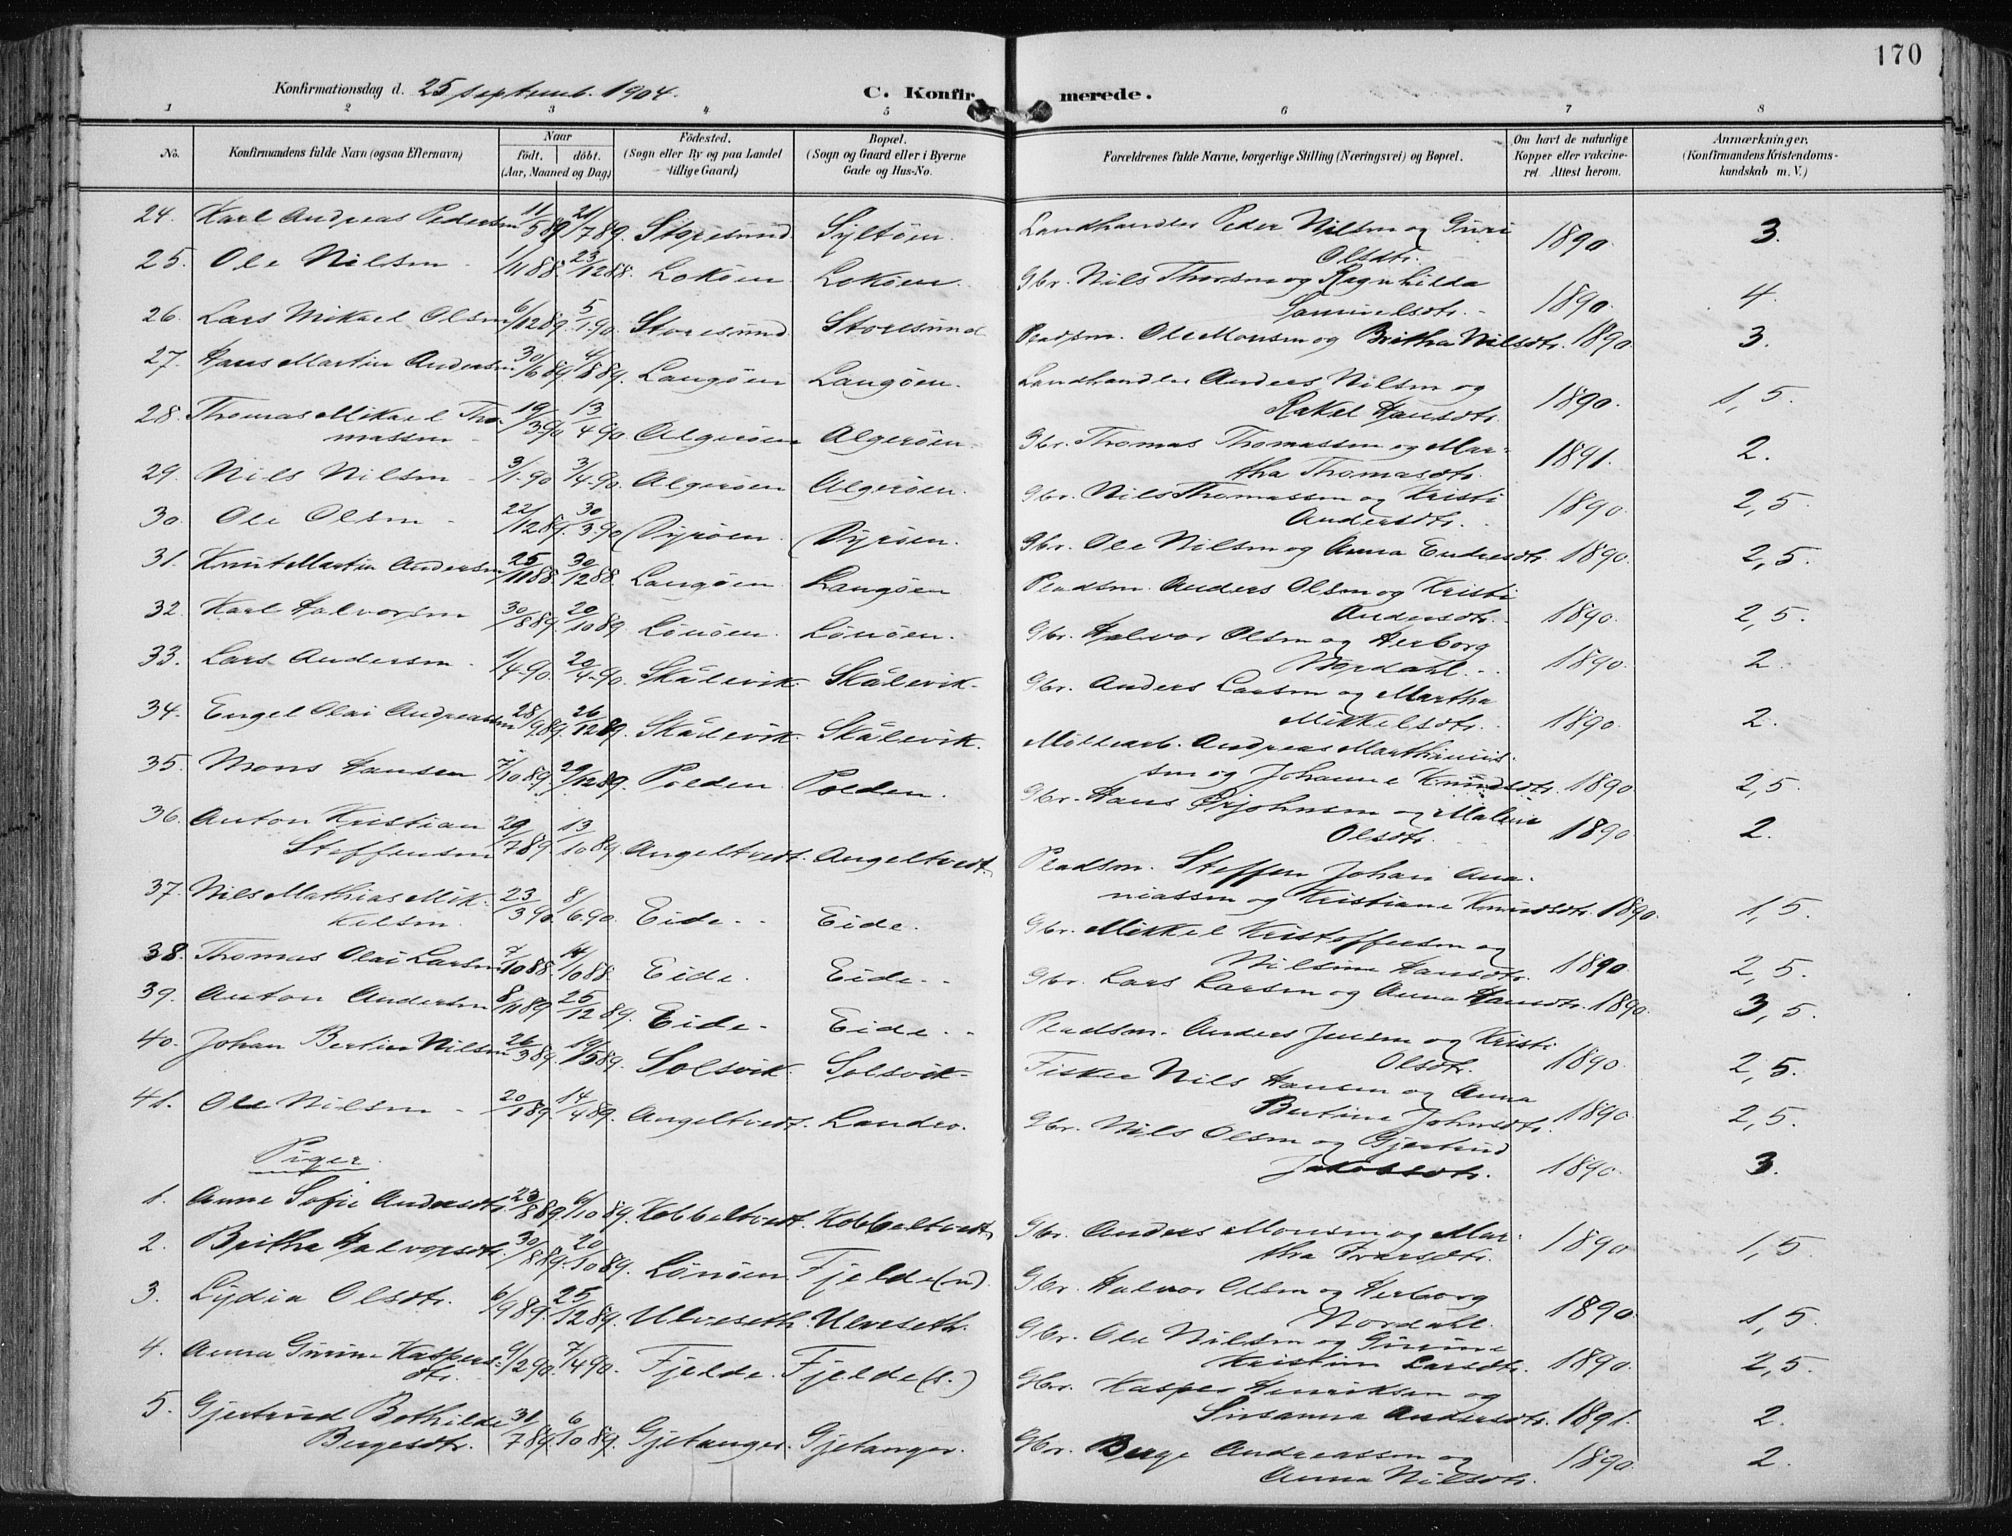 170
Konfirmationsdag d. 25 septemb. 1904.
C. Konfirmerede.
1 2 3 4 5 6 7 8
No. Konfirmandens fulde Navn (ogsaa Efternavn) Naar født. døbt. (Aar, Maaned og Dag) Fødested. (Sogn eller By og paa Landet tillige Gaard) Bopæl. (Sogn og Gaard eller i Byerne Gade og Hus-No. Forældrenes fulde Navne, borgerlige Stilling (Næringsvei) og Bopæl. Om havt de naturlige Kopper eller vakcineret. Attest herom. Anmærkninger. (Konfirmandens Kristendomskundskab m. V.)
24. Karl Andreas Pedersen 11/5 89 21/7 89. Storesund Syltøen. Landhandler Peder Nilsen og Guri Olsdtr. 1890. 3.
25. Ole Nilsen 1/11 88. 23/12 88. Lokøen Lokøen. Gbr. Nils Thorsen og Ragnhilda Samuelsdtr. 1890. 4.
26. Lars Mikael Olsen 6/12 89. 5/1 90. Storesund Storesund Pladsm. Ole Monsen og Britha Nilsdtr. 1890 3.
27. Hans Martin Andersen 30/6 89. 4/8 89. Langøen Langøen. Landhandler Anders Nilsen og Rakel Hansdtr. 1890. 1,5.
28. Thomas Mikael Thomassen 19/3 90 13/4 90 Algerøen Algerøen. Gbr. Thomas Thomassen og Martha Thomasdtr. 1891. 2.
29. Nils Nilsen 3/1 90 3/4 90. Algerøen Algerøen. Gbr. Nils Thomassen og Kristi Andersdtr. 1890. 2,5
30. Ole Olsen 22/12 89. 30/3 90 Dyrøen. Dyrøen. Gbr. Ole Nilsen og Anna Endresdtr. 1890. 2,5.
31. Knut Martin Andersen 25/11 88. 30/12 88. Langøen Langøen Pladsm. Anders Olsen og Kristi Andersdtr. 1890. 2,5.
32. Karl Halvorsen 30/8 89. 20/10 89. Lønøen. Lønøen. Gbr. Halvor Olsen og Herborg Nordahl. 1890. 2.
33. Lars Andersen 1/4 90. 20/4 90 Skålevik. Skålevik. Gbr. Anders Larsen og Martha Mikkelsdtr. 1890. 2.
34. Engel Olai Andreassen 28/9 89. 26/12 89 Skålevik. Skålevik. Møllearb. Andreas Marthinussen og Johanne Knudsdtr. 1890 2,5.
35. Mons Hansen 7/10 89. 29/12 89. Polden Polden. Gbr. Hans Ørjohnsen og Malene Olsdtr. 1890 2.
36. Anton Kristian Steffensen 29/7 89 13/10 89. Angeltvedt. Angeltvedt. Pladsm. Steffen Johan Ananiassen og Kristiane Knudsdtr. 1890. 1,5.
37. Nils Mathias Mikkelsen. 23/3 90. 8/6 90. Eide. Eide. Gbr. Mikkel Kristoffersen og Nilsine Hansdtr. 1890. 2,5.
38. Thomas Olai Larsen 7/10 88. 14/10 88 Eide. Eide. Gbr. Lars Larsen og Anna Hansdtr. 1890. 3,5.
39. Anton Andersen 8/11 89 25/12 89. Eide. Eide. Pladsm. Anders Jensen og Kristi Olsdtr. 1890. 2,5.
40. Johan Bertin Nilsen 26/3 89. 19/5 89. Solsvik. Solsvik. Fisker Nils Hansen og Anna Bertine Johnsdtr. 1890. 2,5.
41. Ole Nilsen 20/1 89. 14/4 89. Angeltvedt. Landro. Gbr. Nils Olsen og Gjertrud Jakobsdtr. 1890. 3.
Piger.
1. Anne Sofie Andersdtr. 23/8 89 6/10 89. Kobbeltvedt. Kobbeltvedt Gbr. Anders Monsen og Martha Ivarsdtr. 1890. 1,5.
2. Britha Halvorsdtr. 30/8 89. 20/10 89. Lønøen Fjelde (n). Gbr. Halvor Olsen og Herborg Nordahl. 1890. 1,5.
3. Lydia Olsdtr. 6/9 89. 25/12 89. Ulveseth. Ulveseth. Gbr. Ole Nilsen og Gurine Kristine Larsdtr. 1890. 2,5.
4. Anna Gurine Kaspersdtr. 9/2 90. 7/4 90. Fjelde. Fjelde (s.) Gbr. Kasper Henriksen og Susanna Andersdtr. 1891. 2.
5. Gjertrud Bothilde Bergesdtr. 31/7 89. 6/10 89. Gjetanger. Gjetanger. Gbr. Berge Andreassen og Anna Nilsdtr. 1890. 2.